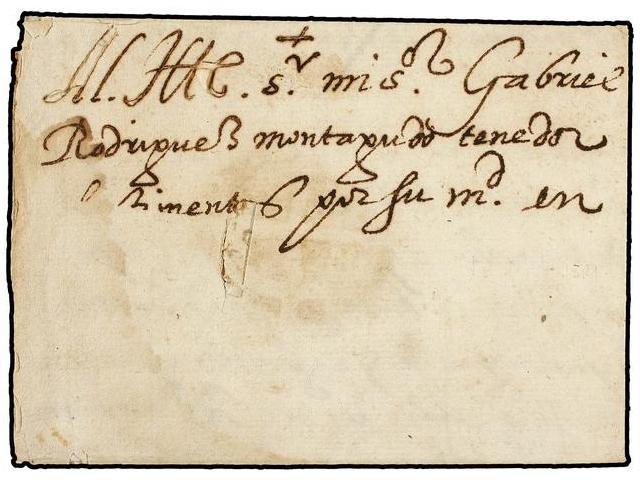 +
Al Ille. sr. mi sor. Gabriel
Rodriguez montagudo tenedor
timentos por su md. en